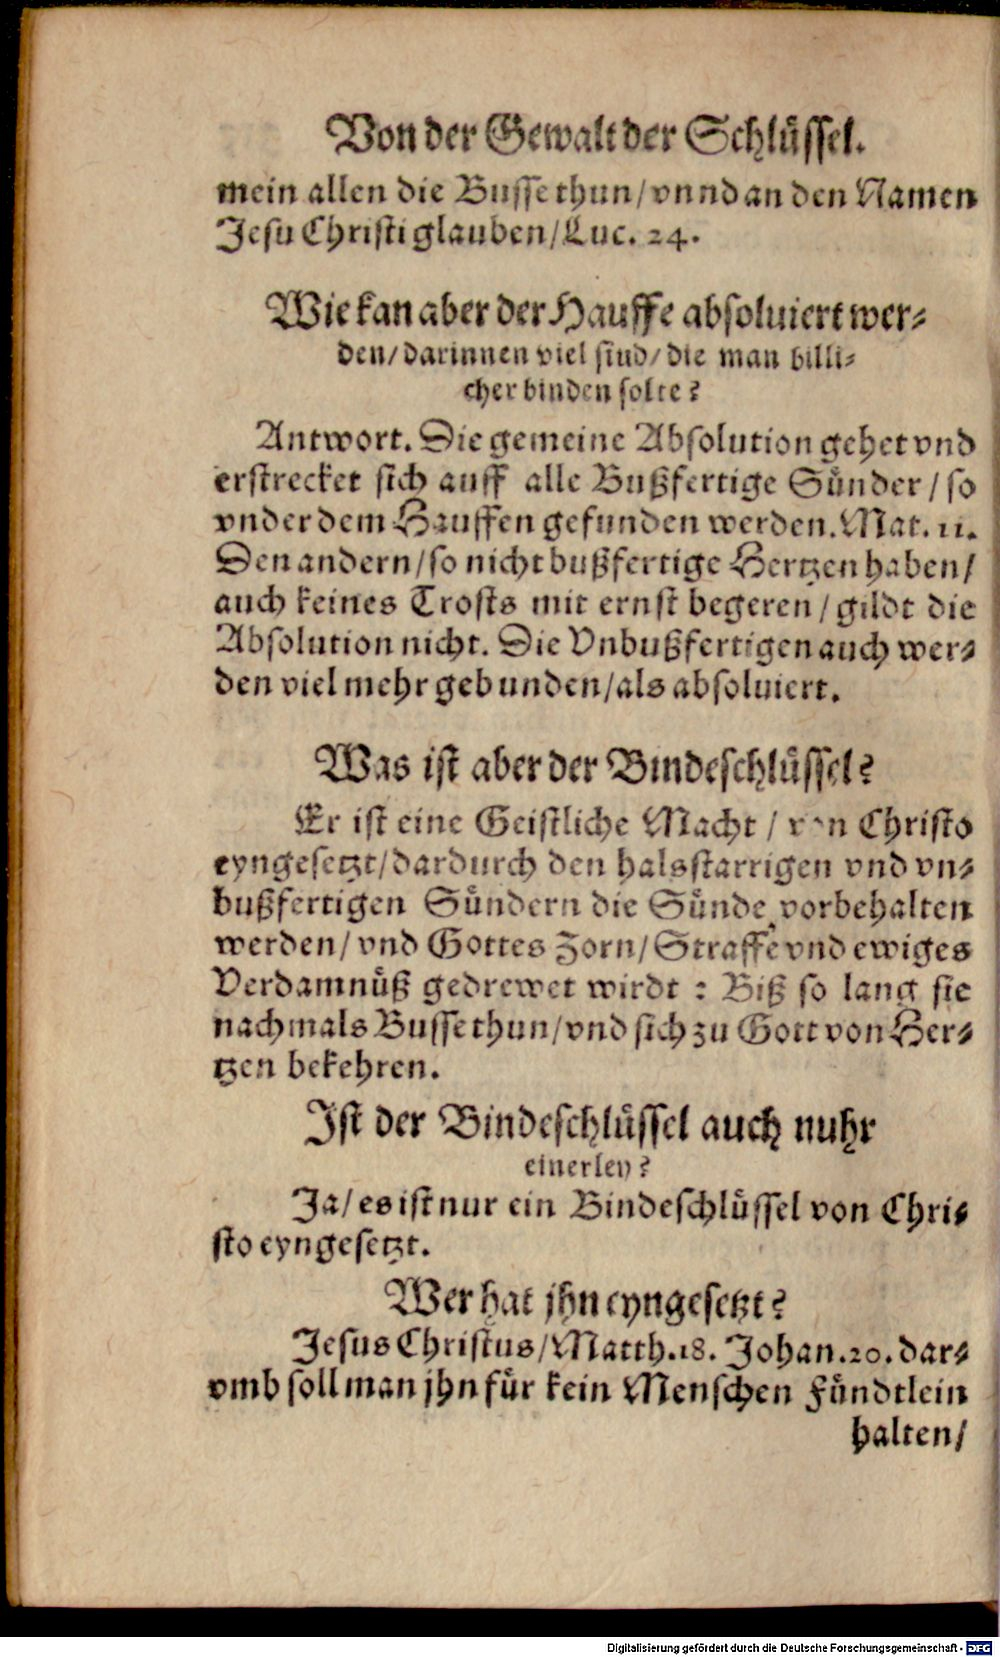 Von der Gewalt der Schlüssel.
mein allen die Busse thun/ vnnd an den Namen
Jesu Christi glauben/ Luc. 24.
Wie kan aber der Hauffe absoluiert wer-
den/ darinnen viel sind/ die man billi-
cher binden solte?
Antwort. Die gemeine Absolution gehet vnd
erstrecket sich auff alle Bußfertige Sünder/ so
vnder dem Hauffen gefunden werden. Mat. 11.
Den andern/ so nicht bußfertige Hertzen haben/
auch keines Trosts mit ernst begeren/ gildt die
Absolution nicht. Die Vnbußfertigen auch wer-
den viel mehr gebunden/ als absoluiert.
Was ist aber der Bindeschlüssel?
Er ist eine Geistliche Macht/ von Christo
eyngesetzt/ dardurch den halsstarrigen vnd vn-
bußfertigen Sündern die Sünde vorbehalten
werden/ vnd Gottes Zorn/ Straffe vnd ewiges
Verdamnüß gedrewet wirdt: Biß so lang sie
nachmals Busse thun/ vnd sich zu Gott von Her-
tzen bekehren.
Ist der Bindeschlüssel auch nuhr
einerley?
Ja/ es ist nur ein Bindeschlüssel von Chri-
sto eyngesetzt.
Wer hat jhn eyngesetzt?
Jesus Christus/ Matth. 18. Johan. 20. dar-
vmb soll man jhn für kein Menschen Fündtlein
halten/
Digitalisierung gefördert durch die Deutsche Forschungsgemeinschaft - DFG